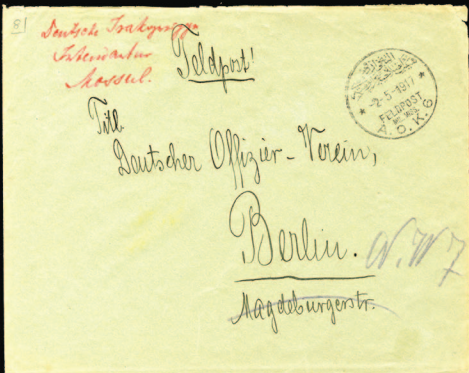 8
Deutsche Irakgruppe
Intendantur
Mossul.
Feldpost!
-2-5-1917
FELDPOST
A.O.K. 6
Titl.
Deutscher Offizier-Verein,
Berlin. N.W 7
Magdeburgerstr.